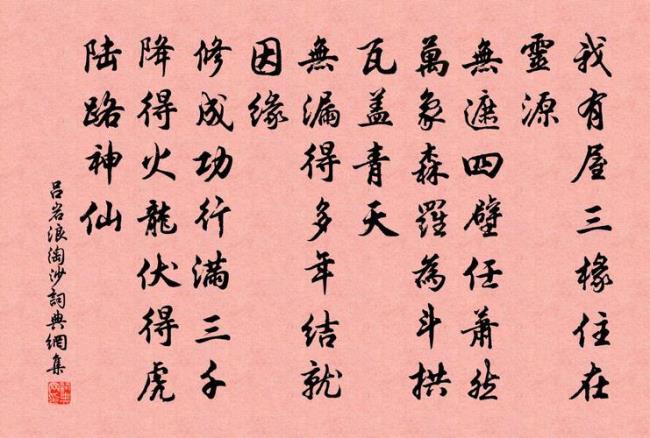 我有屋三椽住在
靈源
無遮四壁任蕭然
萬象森羅為斗拱
瓦盖青天
無漏得多年結就
因緣
修成功行滿三千
降得火龍伏得虎
陆路神仙
吕岩浪淘沙詞典網集